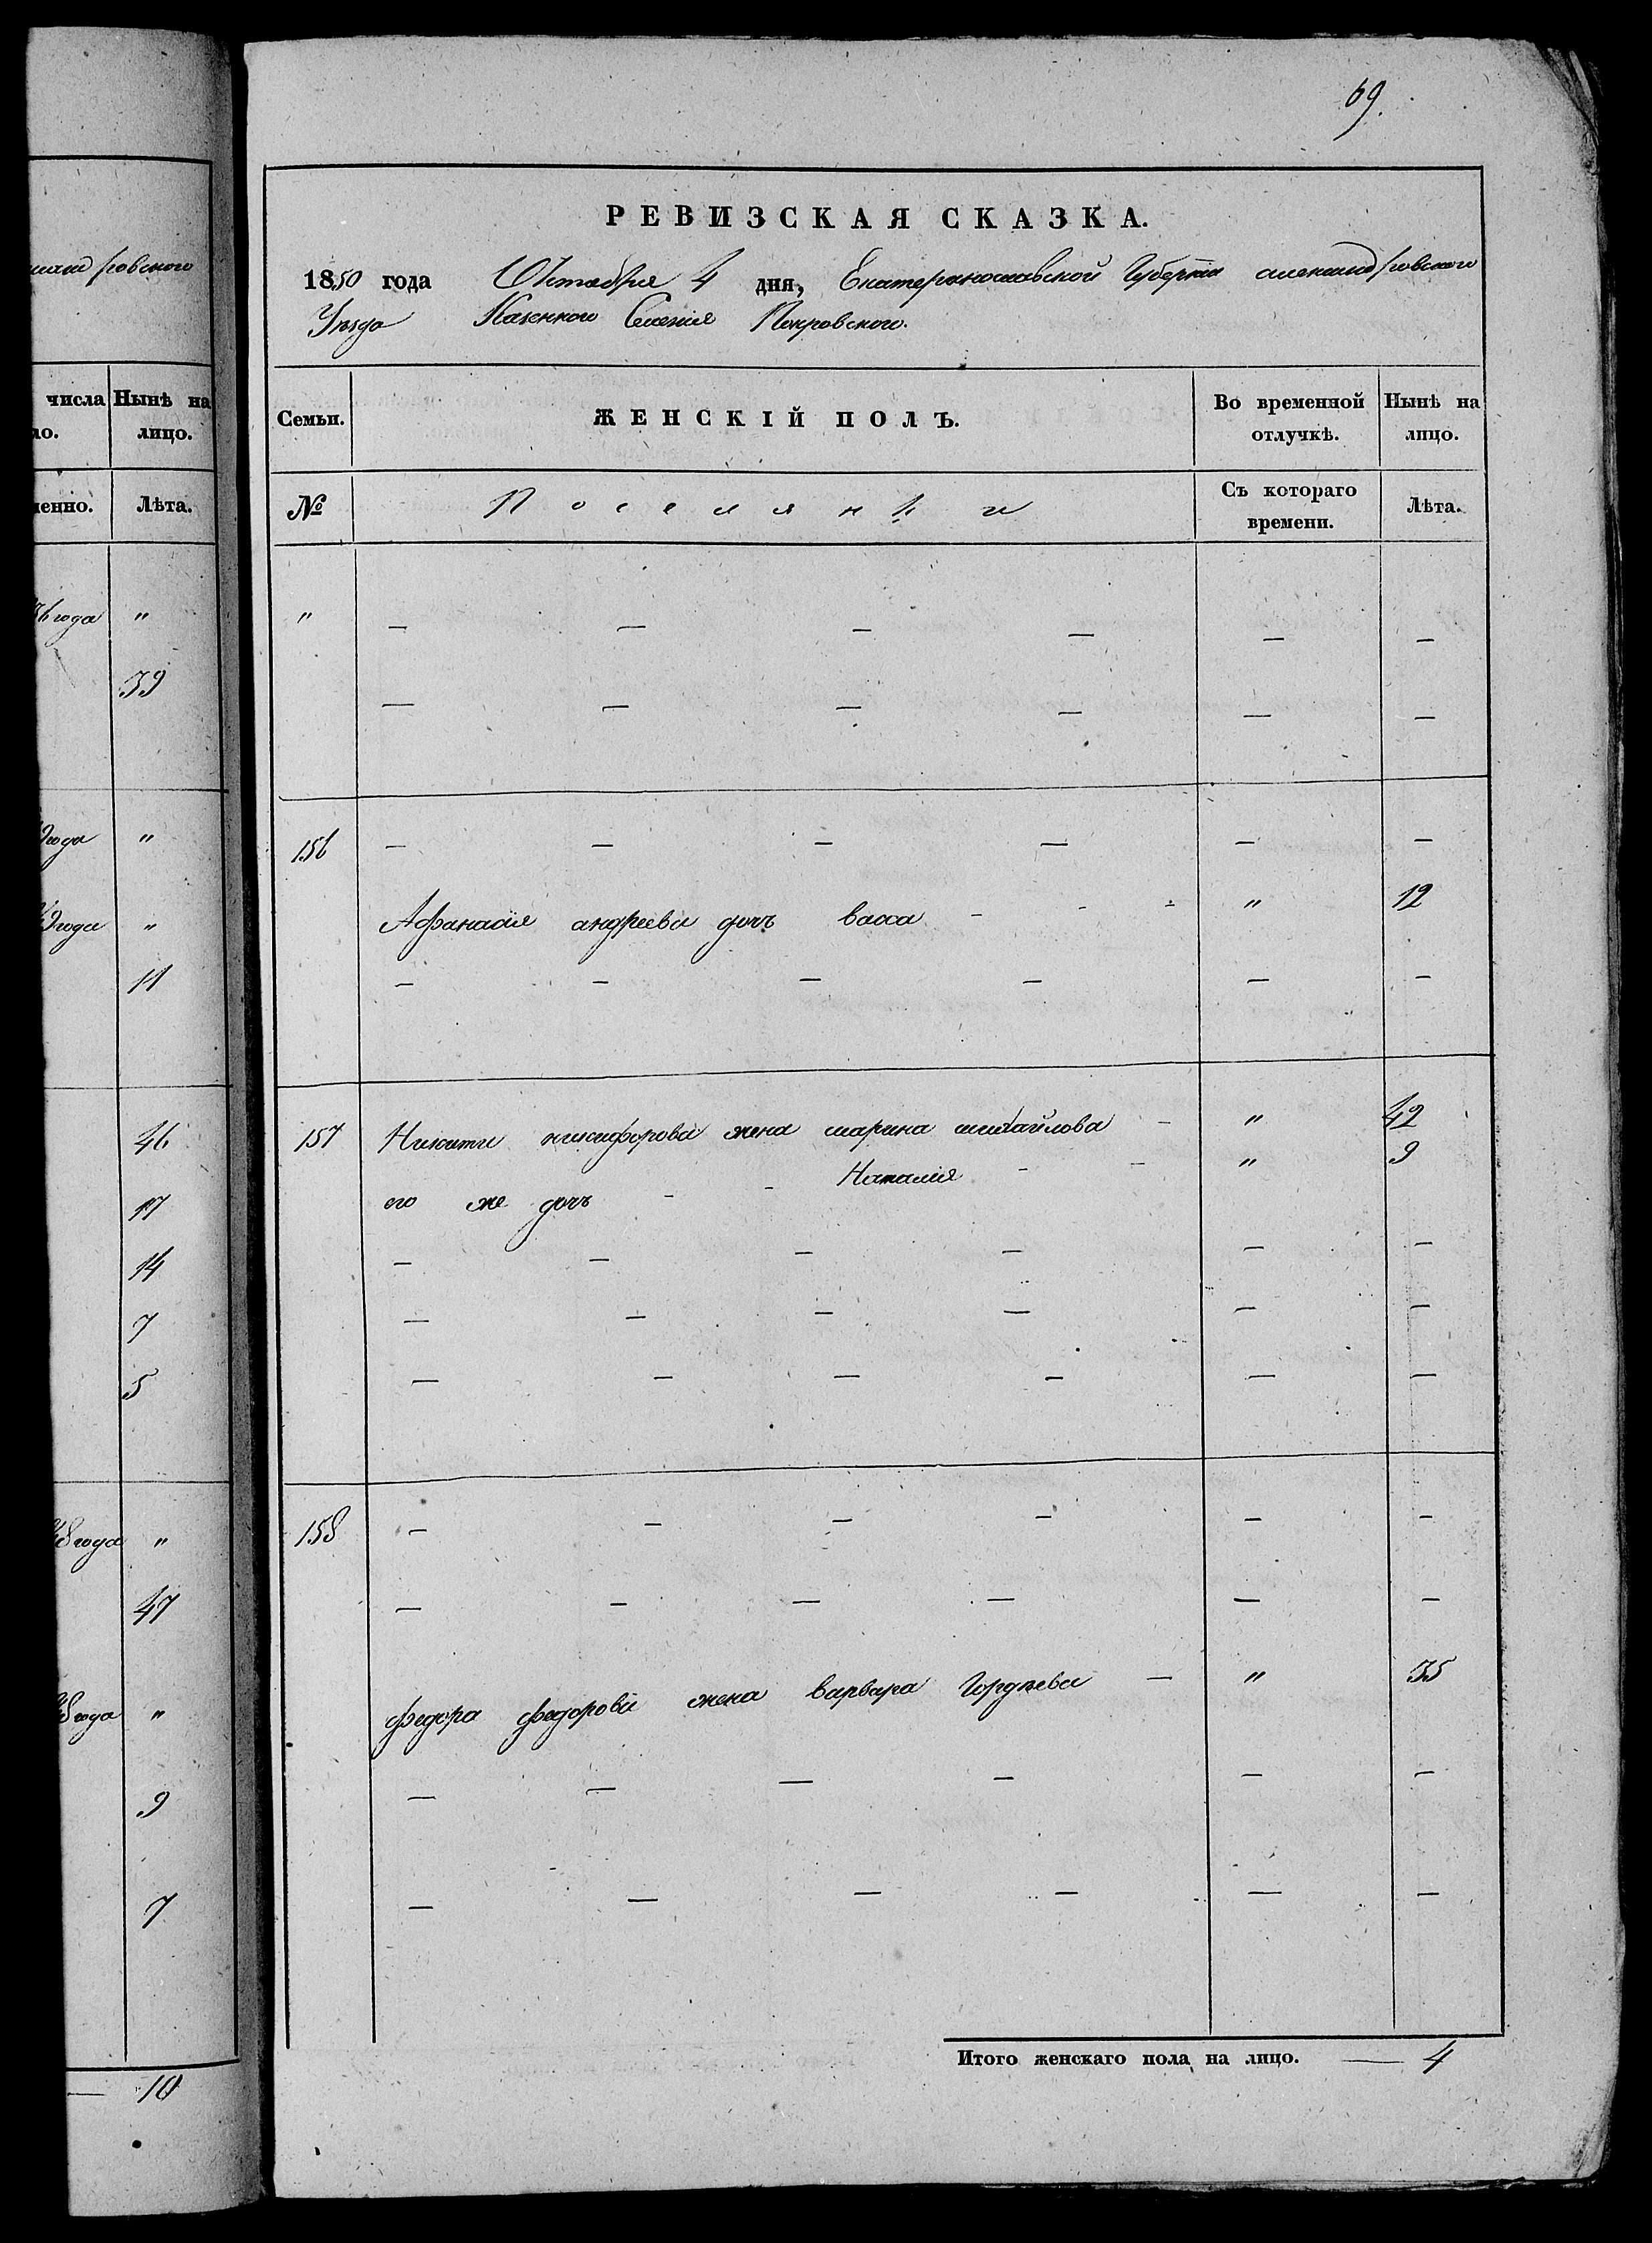 69.
РЕВИЗСКАЯ СКАЗКА.
1850 года Октября 4 дня, Екатеринославской Губернии александровского
Уѣзда Казенного Селения Покровского.
Семьи. ЖЕНСКІЙ ПОЛЪ. Во временной отлучкѣ. Нынѣ на лицо.
№ Поселянки Съ котораго времени. Лѣта.
" — — — — — —
— — — — — —
156 — — — — — —
Афанасия андреева дочь васса - - - " 12
— — — — — —
157 Никиты никифорова жена марина михайлова — " 42
его же дочь - - Наталия - — " 9
— — — — — —
— — — — — —
— — — — — —
158 — — — — — —
— — — — — —
федора федорова жена варвара Гордѣева — " 35
— — — — — —
— — — — — —
Итого женскаго пола на лицо. — 4
ровского
числа Нынѣ на
ло. лицо.
менно. Лѣта.
36 года "
39
9 года "
49 года "
11
46
17
14
7
5
48 года "
47
48 года "
9
7
— 10